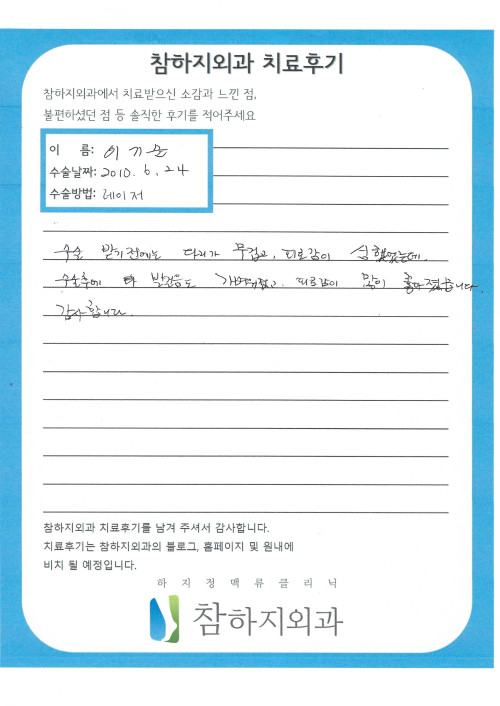 참하지외과 치료후기
참하지외과에서 치료받으신 소감과 느낀 점,
불편하셨던 점 등 솔직한 후기를 적어주세요
이 름: 이기순
수술날짜: 2010. 6. 24
수술방법: 레이저
수술 받기전에는 다리가 무겁고, 피로감이 심했었는데.
수술후에 발걸음도 가벼워졌고, 피로감이 많이 좋아졌습니다.
감사합니다.
참하지외과 치료후기를 남겨 주셔서 감사합니다.
치료후기는 참하지외과의 블로그, 홈페이지 및 원내에
비치 될 예정입니다.
하지정맥류클리닉
참하지외과